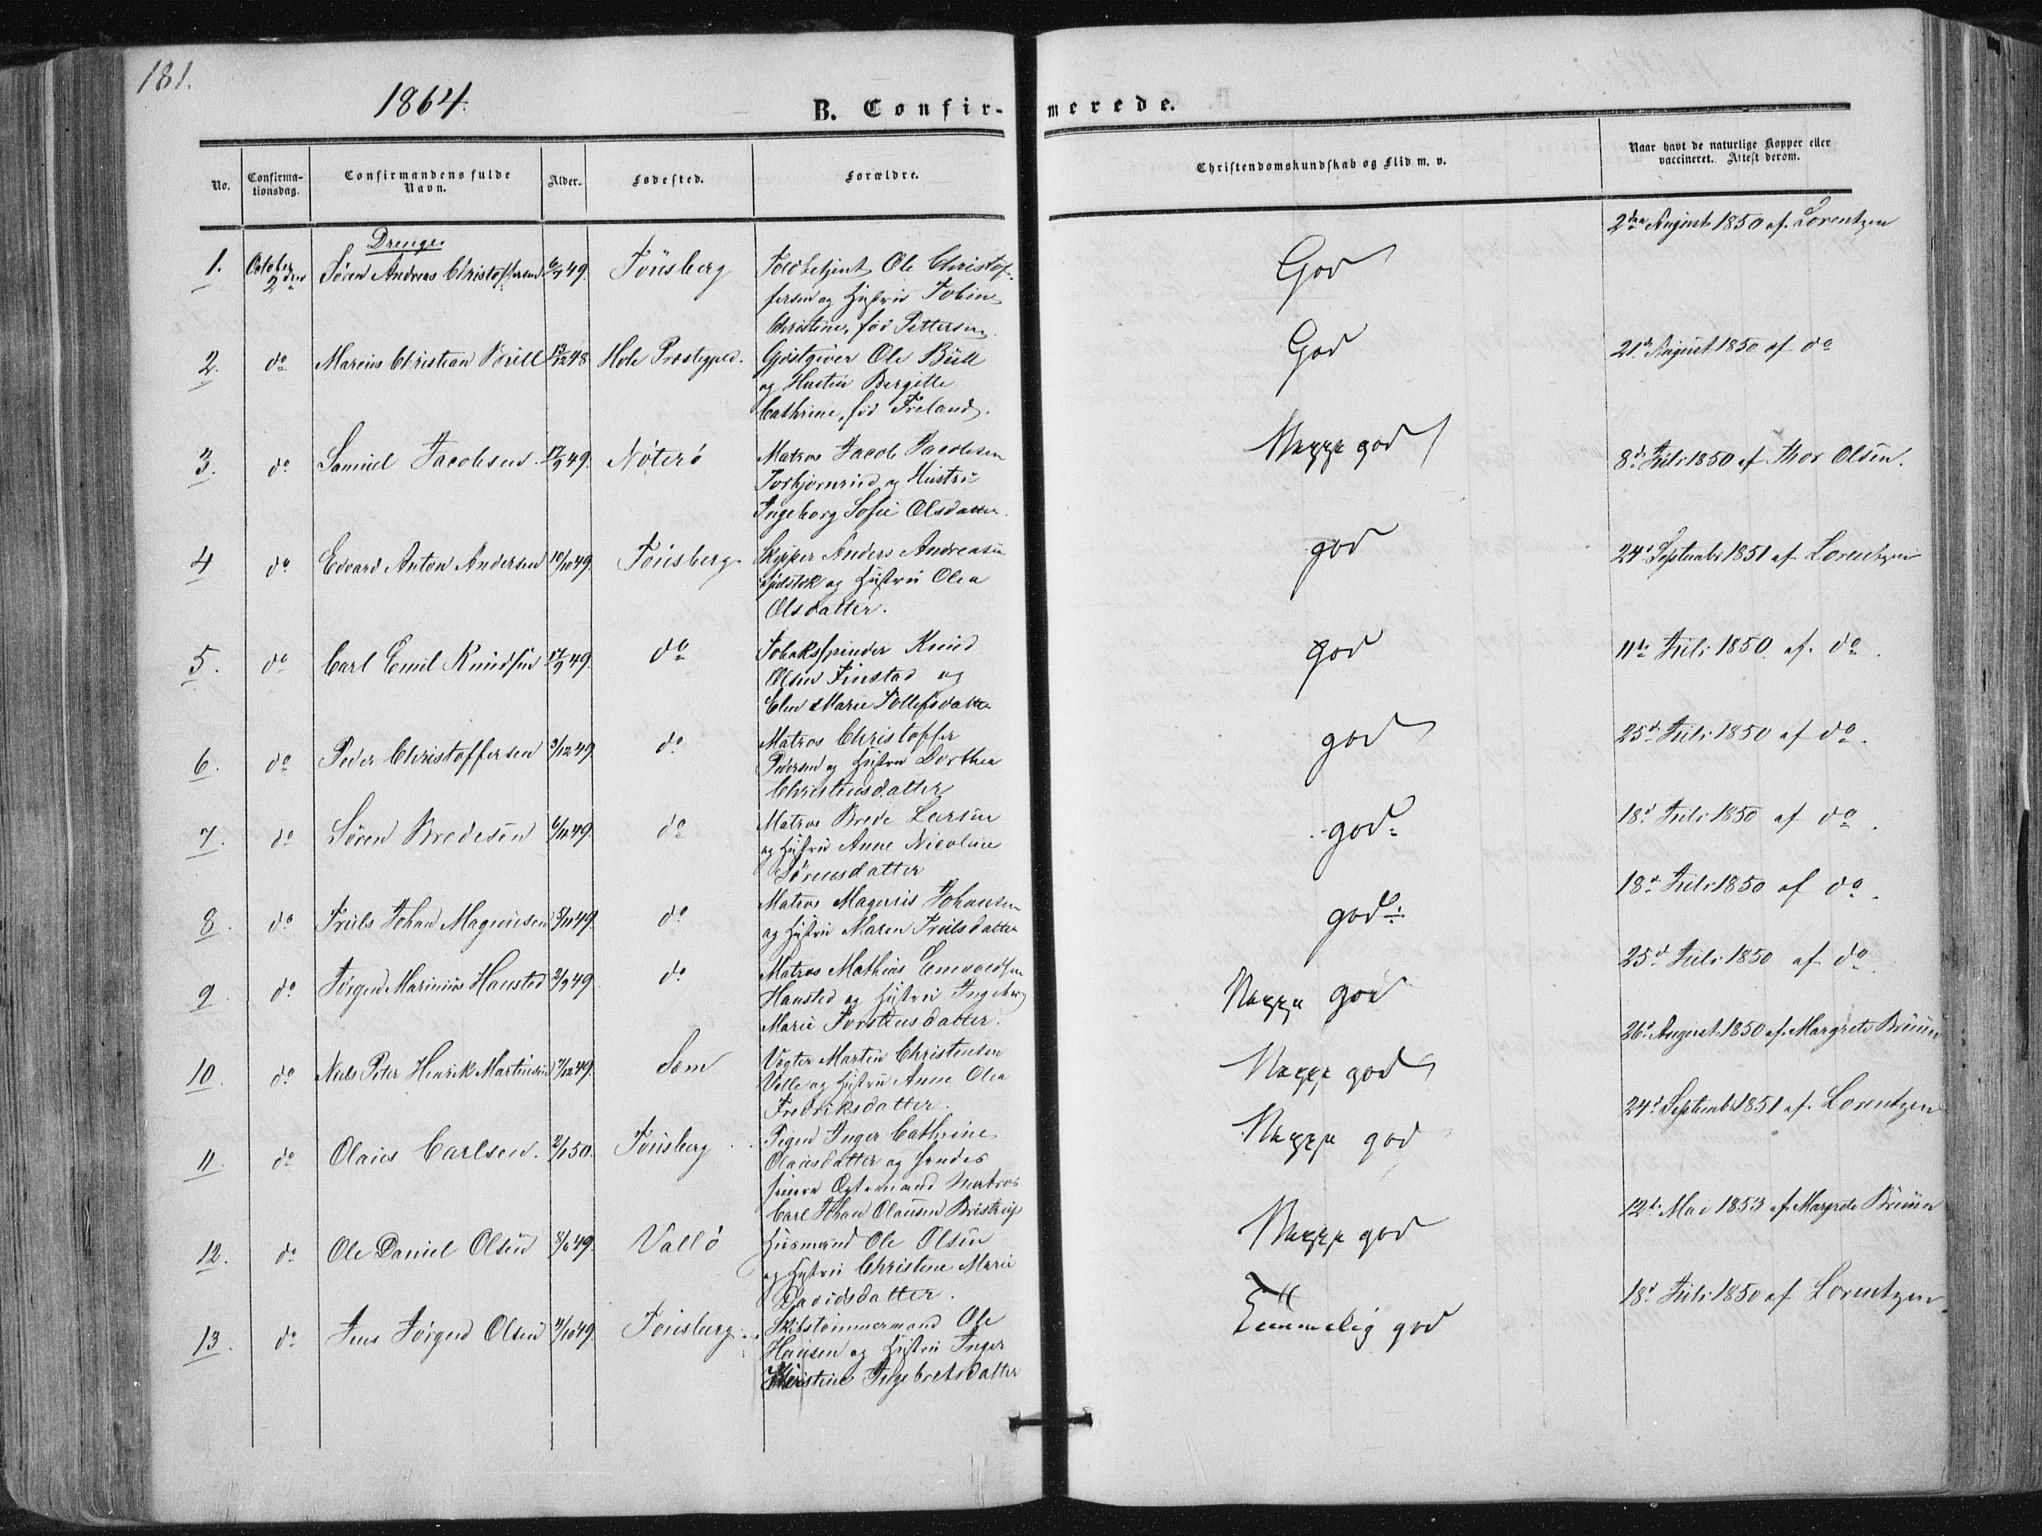 181.
1864.
B. Confir- merede.
No.
Confirma-
tionsdag.
Confirmandens fulde
Navn.
Alder.
Fødested.
Forældre.
Christendomskundskab og Flid m. v.
Naar havt de naturlige Kopper eller
vaccineret. Attest derom.
Drenge
1. October 2den Søren Andreas Christoffersen 6/9 49. Tönsberg
Ole Christof-
fersen og Hustru
Christine, fød Pettersen.
God
2den August 1850 af Lorentzen
2. do Marius Christian Büll 13/12 48 Hole Præstegjeld.
Gjæstgiver Ole Büll
og Hustru Bergitte
Cathrine, fød Freland.
God
21de August 1850 af do
3. do Samuel Jacobsen 17/9 49. Nöterö
Matros Jacob Jacobsen
og Hustru
Ingeborg Sofie Olsdatter.
Megge god
8de Juli 1850 af Thor Olsen.
4 do Edvard Anton Andersen 10/10 49. Tönsberg.
Skipper Anders Andreasen
og Hustru Olea
Olsdatter.
god
24de Septembr 1851 af Lorentzen
5. do Carl Emil Knudsen 17/9 49. do
Tobaksspinder Knud
Olsen Finstad og
Elen Marie Tollefsdatter
god
11te Juli 1850. af. do.
6. do Peder Christoffersen 3/12 49. do
Matros Christoffer
Pedersen og Hustru Dorthea
Christensdatter
god
25de Juli 1850 af do.
7. do Søren Bredesen 6/11 49. do
Matros Brede Larsen
og Hustru Anne Nicoline
Sörensdatter
god
18de Juli 1850 af do.
8. do Truls Johan Magnusen 3/11 49. do
Matros Magnus Johansen
og Hustru Maren Trulsdatter
god
18de Juli 1850 af do.
9. do Jørgen Marinius Hansted 2/9 49. do
Matros Mathias
Hansted og Hustru Ingeborg
Marie Torstensdatter.
Megge god
25de Juli 1850 af do.
10. do Niels Peter Henrik Martinsen 7/12 49. Sem
Vægter Martin Christensen
Volle og Hustru Anne Olea
Fredriksdatter.
Megge god
26de August 1850 af. Margrete Brüün
11. do Olaus Carlsen. 2/1 50. Tönsberg
Pigen Inger Cathrine
Olausdatter og hendes
senere Ægtemand Matros
Carl Johan Olausen Bristrup
Megge god
24de Septembr 1851 af. Lorentzen
12. do Ole Daniel Olsen 8/6 49. Vallö
Husmand Ole Olsen
og Hustru Christine Marie
Davidsdatter.
Megge god
12te Mai 1853 af. Margrete Brüün
13. do Jens Jørgen Olsen 11/10 49. Tönsberg.
Skibstømmermand Ole
Hansen og Hustru Inger
Christine Ingebretsdatter
Temmelig god
18de Juli 1850 af. Lorentzen.